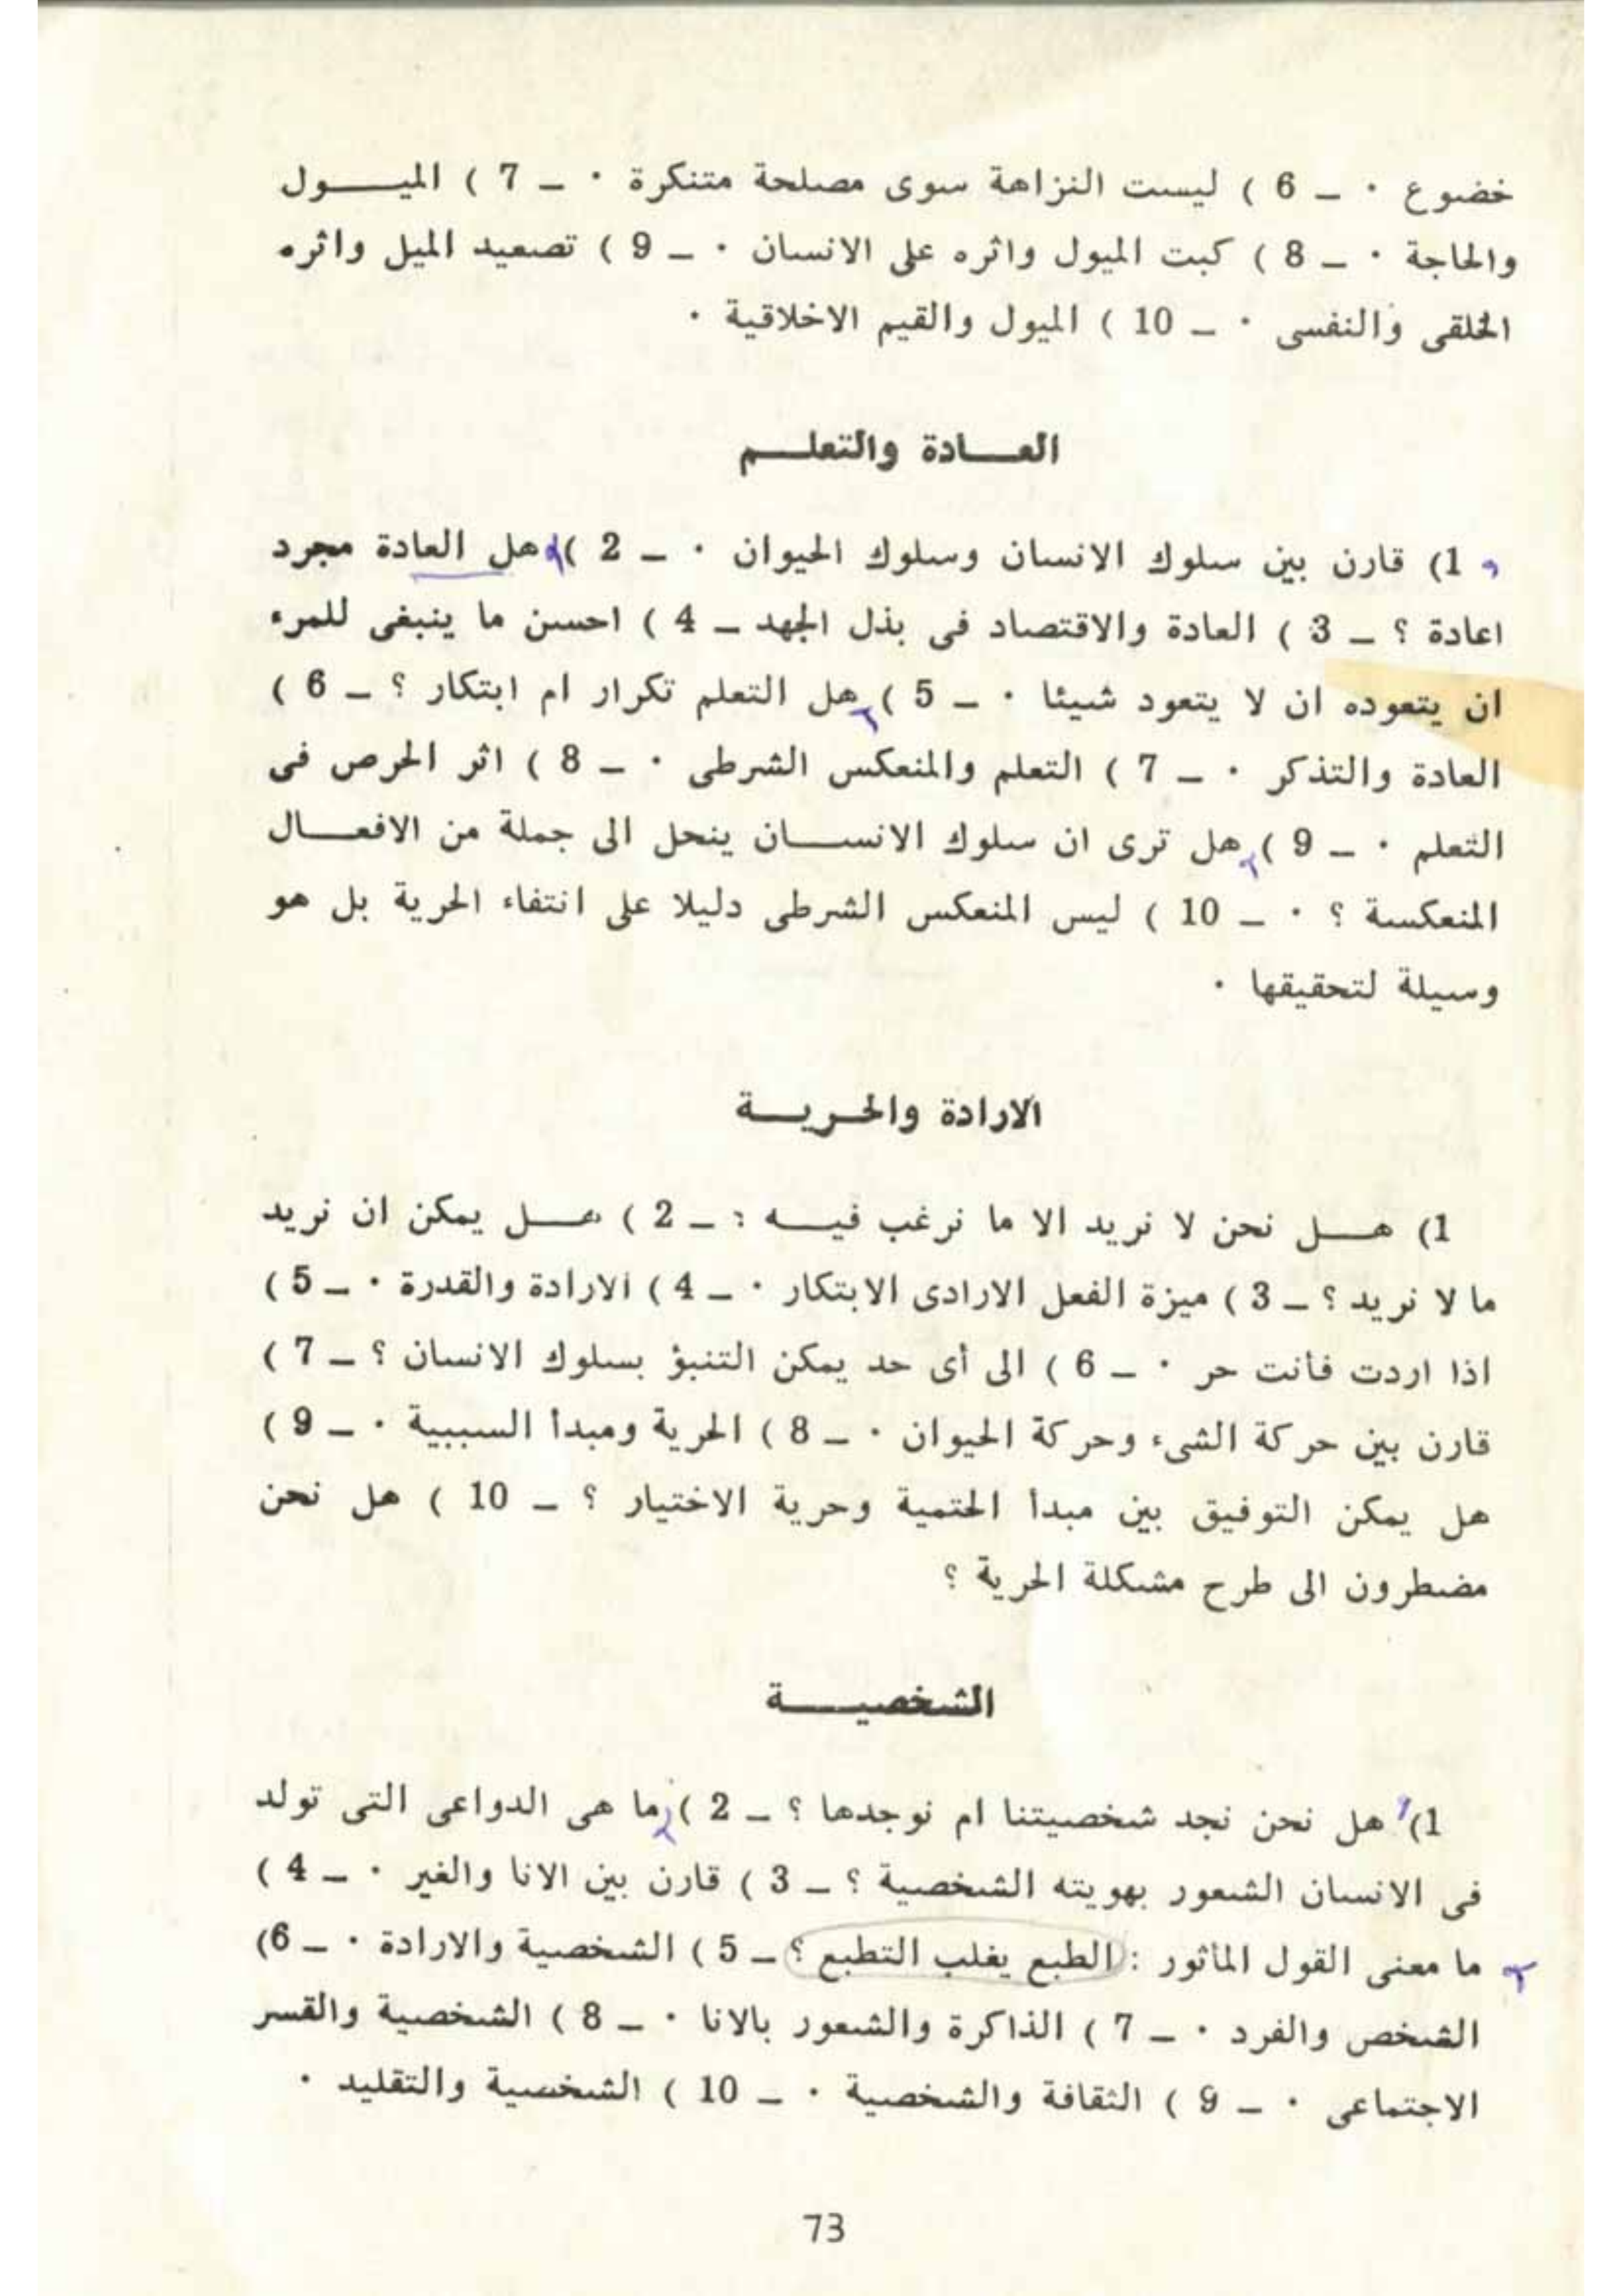 خضوع · ــ 6 ) ليست النزاهة سوى مصلحة متنكرة · ــ 7 ) الميول
والحاجة · ــ 8 ) كبت الميول واثره على الانسان · ــ 9 ) تصعيد الميل واثره
الخلقى والنفسى · ــ 10 ) الميول والقيم الاخلاقية ·
العادة والتعلم
1) قارن بين سلوك الانسان وسلوك الحيوان · ــ 2 ) هل العادة مجرد
اعادة ؟ ــ 3 ) العادة والاقتصاد فى بذل الجهد ــ 4 ) احسن ما ينبغى للمرء
ان يتعوده ان لا يتعود شيئا · ــ 5 ) هل التعلم تكرار ام ابتكار ؟ ــ 6 )
العادة والتذكر · ــ 7 ) التعلم والمنعكس الشرطى · ــ 8 ) اثر الحرص فى
التعلم · ــ 9 ) هل ترى ان سلوك الانسان ينحل الى جملة من الافعال
المنعكسة ؟ · ــ 10 ) ليس المنعكس الشرطى دليلا على انتفاء الحرية بل هو
وسيلة لتحقيقها ·
الارادة والحرية
1) هل نحن لا نريد الا ما نرغب فيه ؟ ــ 2 ) هل يمكن ان نريد
ما لا نريد ؟ ــ 3 ) ميزة الفعل الارادى الابتكار · ــ 4 ) الارادة والقدرة · ــ 5 )
اذا اردت فأنت حر · ــ 6 ) الى أى حد يمكن التنبؤ بسلوك الانسان ؟ ــ 7 )
قارن بين حركة الشىء وحركة الحيوان · ــ 8 ) الحرية ومبدأ السببية · ــ 9 )
هل يمكن التوفيق بين مبدأ الحتمية وحرية الاختيار ؟ ــ 10 ) هل نحن
مضطرون الى طرح مشكلة الحرية ؟
الشخصية
1) هل نحن نجد شخصيتنا ام نوجدها ؟ ــ 2 ) ما هى الدواعى التى تولد
فى الانسان الشعور بهويته الشخصية ؟ ــ 3 ) قارن بين الانا والغير · ــ 4 )
ما معنى القول المأثور : الطبع يغلب التطبع ؟ ــ 5 ) الشخصية والارادة · ــ 6)
الشخص والفرد · ــ 7 ) الذاكرة والشعور بالانا · ــ 8 ) الشخصية والقسر
الاجتماعى · ــ 9 ) الثقافة والشخصية · ــ 10 ) الشخصية والتقليد ·
73